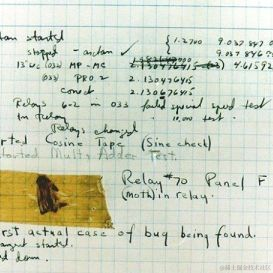 started { 1.2700 9.037 847 0
stopped - arctan ✓ 9.037 846 9
13" uc (032) MP - MC 4.6159
(033) PRO 2 2.130476415
conect 2.130676415
Relays 6-2 in 033 failed special speed test
in relay 10.000 test.
Relays changed
Cosine Tape (Sine check)
started Mult + Adder Test.
Relay #70 Panel F
(moth) in relay.
actual case of bug being found.
started.
down.
@稀土掘金技术社区